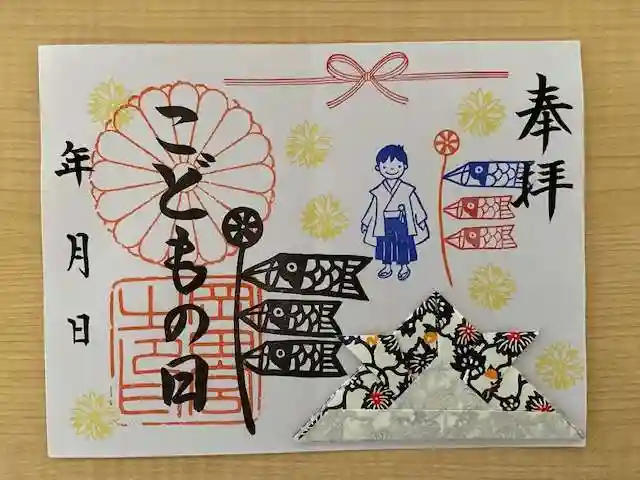 奉拝
こどもの日
年月日